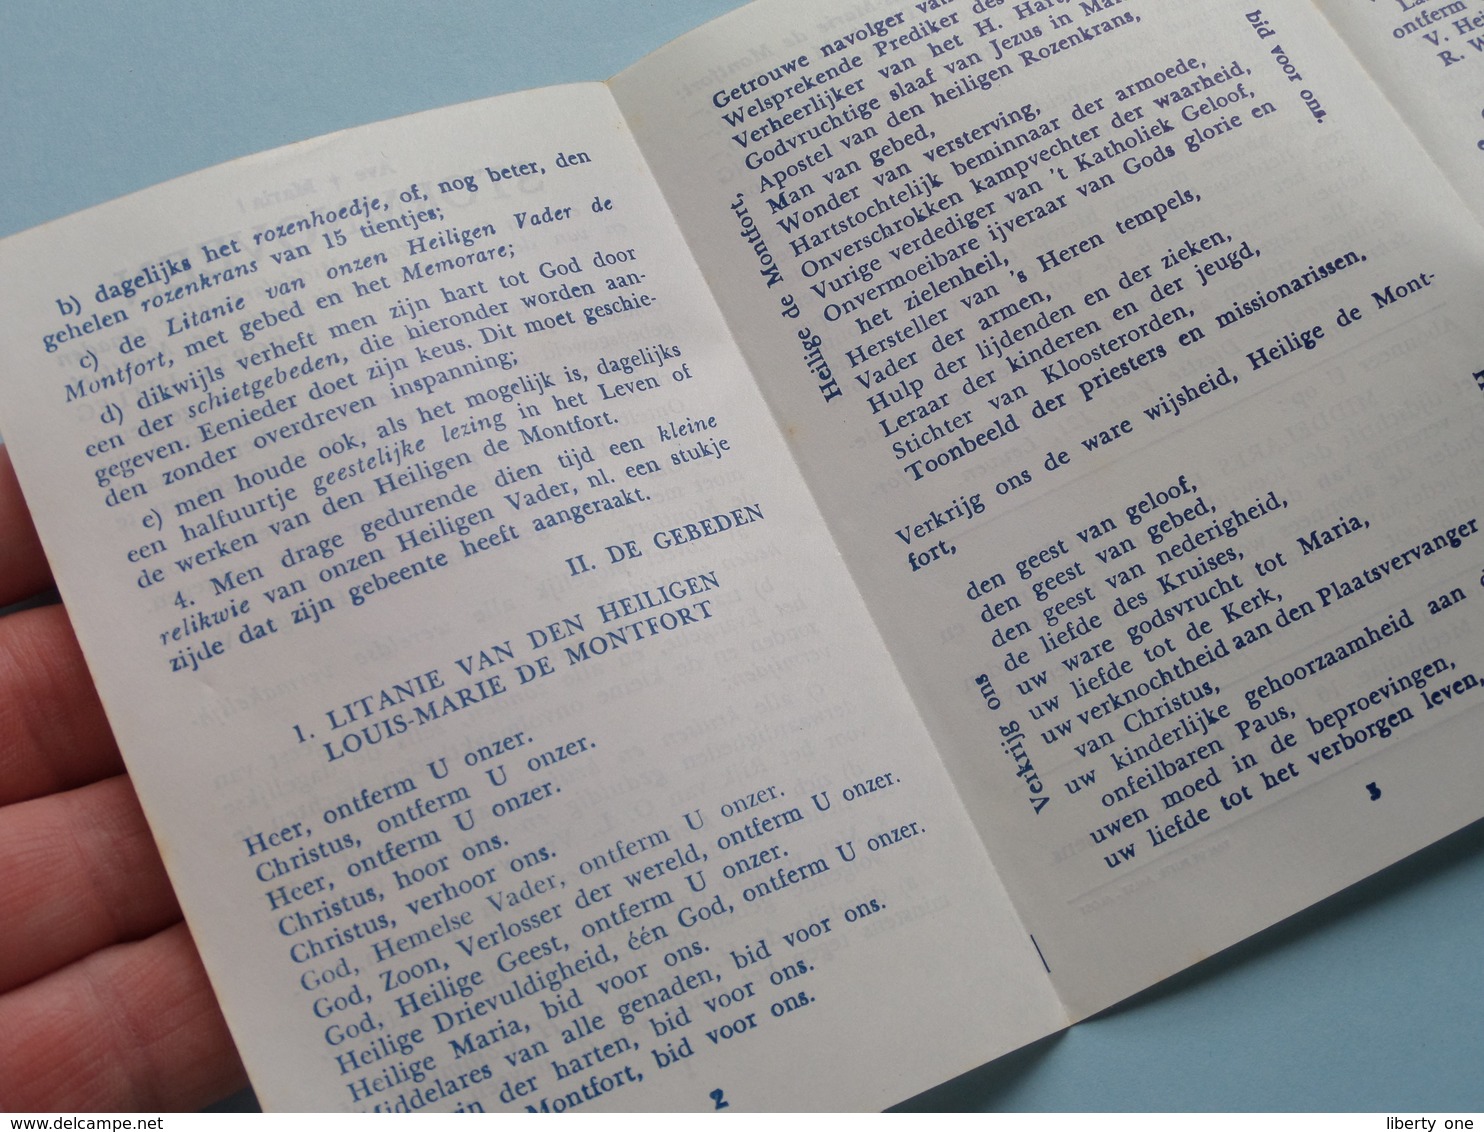 b) dagelijks het rozenhoedje, of, nog beter, den
gehelen rozenkrans van 15 tientjes;
c) de Litanie van onzen Heiligen Vader de
Montfort, met gebed en het Memorare;
d) dikwijls verheft men zijn hart tot God door
een der schietgebeden, die hieronder worden aan-
gegeven. Eenieder doet zijn keus. Dit moet geschie-
den zonder overdreven inspanning;
e) men houde ook, als het mogelijk is, dagelijks
een halfuurtje geestelijke lezing in het Leven of
de werken van den Heiligen de Montfort.
4. Men drage gedurende dien tijd een kleine
relikwie van onzen Heiligen Vader, nl. een stukje
zijde dat zijn gebeente heeft aangeraakt.
II. DE GEBEDEN
1. LITANIE VAN DEN HEILIGEN
LOUIS-MARIE DE MONTFORT
Heer, ontferm U onzer.
Christus, ontferm U onzer.
Heer, ontferm U onzer.
Christus, hoor ons.
Christus, verhoor ons.
God, Hemelse Vader, ontferm U onzer.
God, Zoon, Verlosser der wereld, ontferm U onzer.
God, Heilige Geest, ontferm U onzer.
Heilige Drievuldigheid, één God, ontferm U onzer.
Heilige Maria, bid voor ons.
Middelares van alle genaden, bid voor ons.
in der harten, bid voor ons.
Montfort, bid voor ons.
2
Getrouwe navolger van
Welsprekende Prediker des
Verheerlijker van het H. Hart,
Godvruchtige slaaf van Jezus in Maria
Apostel van den heiligen Rozenkrans,
Man van gebed,
Wonder van versterving,
Hartstochtelijk beminnaar der armoede,
Onverschrokken kampvechter der waarheid,
Vurige verdediger van 't Katholiek Geloof,
Onvermoeibare ijveraar van Gods glorie en
het zielenheil,
Hersteller van 's Heren tempels,
Vader der armen,
Hulp der lijdenden en der zieken,
Leraar der kinderen en der jeugd,
Stichter van Kloosterorden,
Toonbeeld der priesters en missionarissen,
Heilige de Montfort,
bid voor ons.
Verkrijg ons de ware wijsheid, Heilige de Mont-
fort,
den geest van geloof,
den geest van gebed,
den geest van nederigheid,
de liefde des Kruises,
uw ware godsvrucht tot Maria,
uw liefde tot de Kerk,
uw verknochtheid aan den Plaatsvervanger
van Christus,
uw kinderlijke gehoorzaamheid aan
onfeilbaren Paus,
uwen moed in de beproevingen,
uw liefde tot het verborgen leven,
Verkrijg ons
3
ontferm
V. Hei
R. W
liberty one